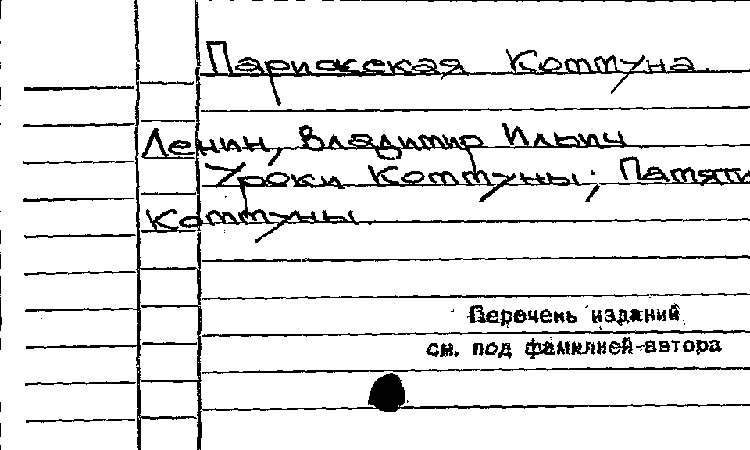 Парижская Коммуна.
Ленин, Владимир Ильич
Уроки Коммуны; Памяти
Коммуны.
Перечень изданий
см. под фамилией автора